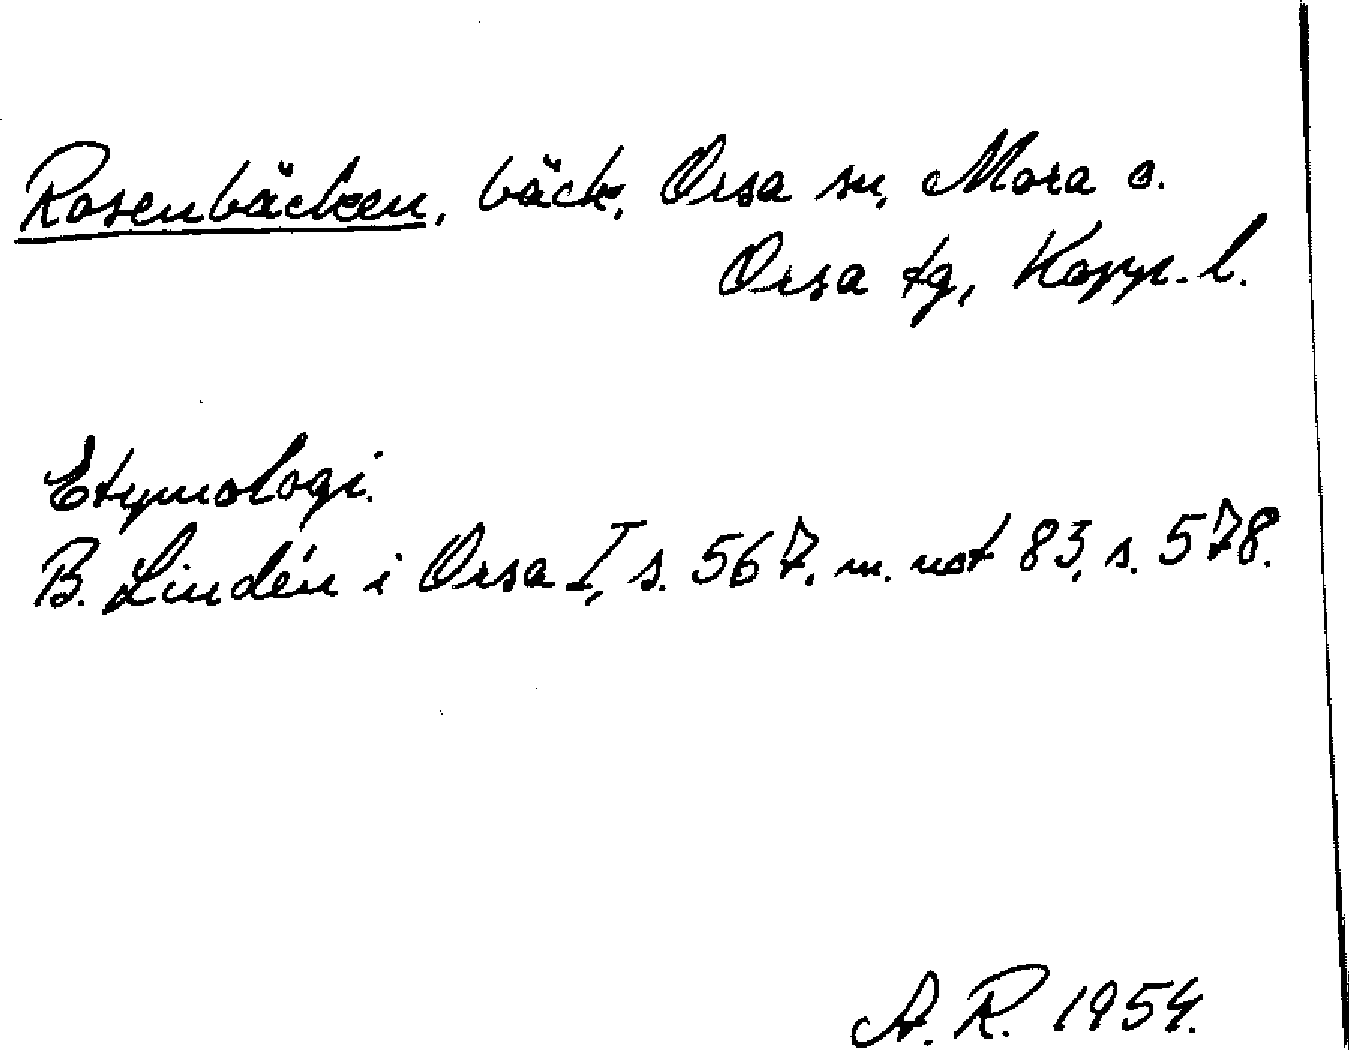 Rosenbäcken, bäck, Orsa sn, Mora o.
Orsa tg, Kopp. l.
Etymologi.
B. Lindén i Orsa I, s. 567, m. not 83, s. 578.
A. R. 1954.